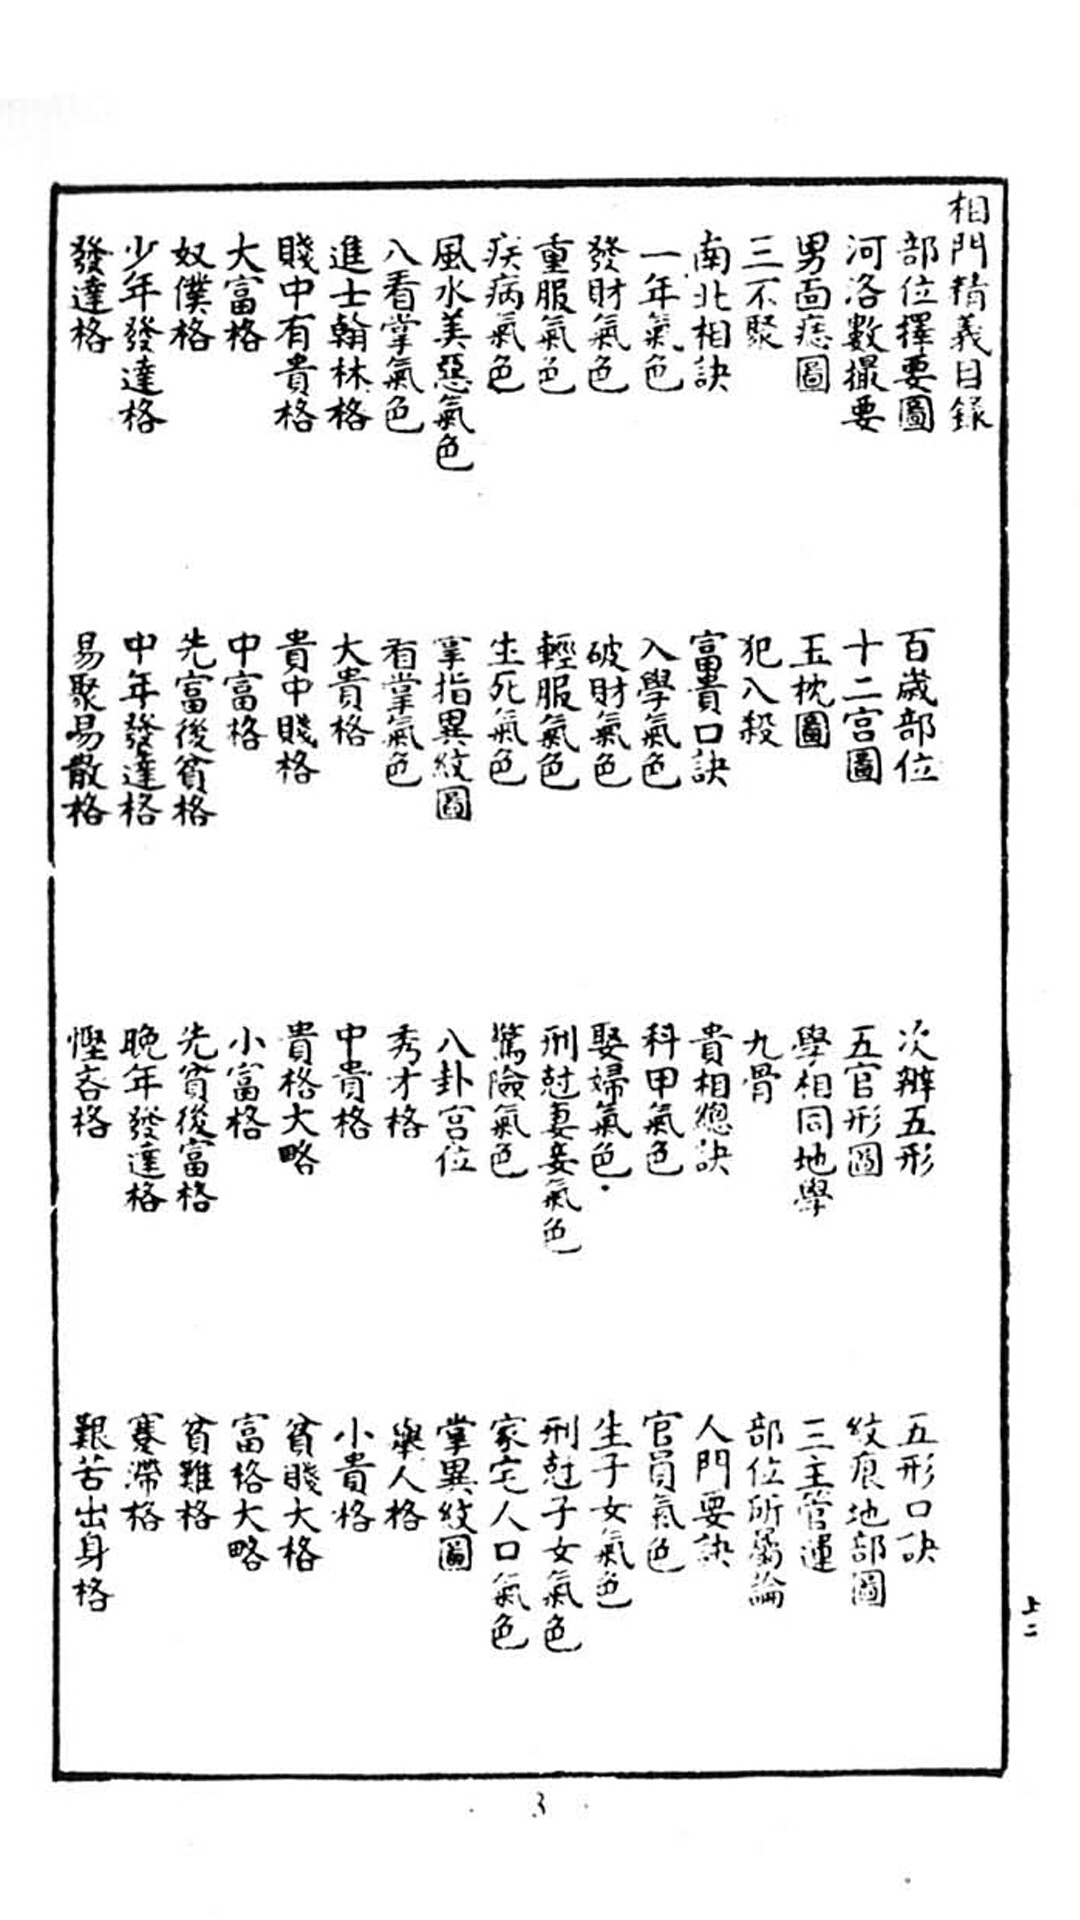 相門精義目錄
部位擇要圖　百歲部位　次辨五形　五形口訣
河洛數撮要　十二宮圖　五官形圖　紋痕地部圖
男面痣圖　玉枕圖　學相同地學　三主管運
三不聚　犯八殺　九骨　部位所屬論
南北相訣　富貴口訣　貴相總訣　人門要訣
一年氣色　入學氣色　科甲氣色　官員氣色
發財氣色　破財氣色　娶婦氣色　生子女氣色
重服氣色　輕服氣色　刑尅妻妾氣色　刑尅子女氣色
疾病氣色　生死氣色　驚險氣色　家宅人口氣色
風水美惡氣色　掌指異紋圖　八卦宮位　掌異紋圖
八看掌氣色　看掌氣色　秀才格　舉人格
進士翰林格　大貴格　中貴格　小貴格
賤中有貴格　貴中賤格　貴格大略　貧賤大格
大富格　中富格　小富格　富格大略
奴僕格　先富後貧格　先貧後富格　貧難格
少年發達格　中年發達格　晚年發達格　蹇滯格
發達格　易聚易散格　慳吝格　艱苦出身格
上二
3